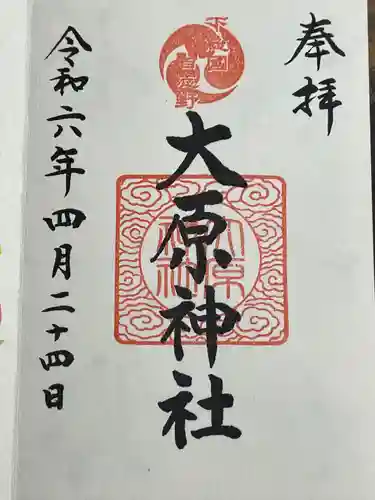 奉拝
下総国
自宮野
大原神社
大原神社
令和六年四月二十四日